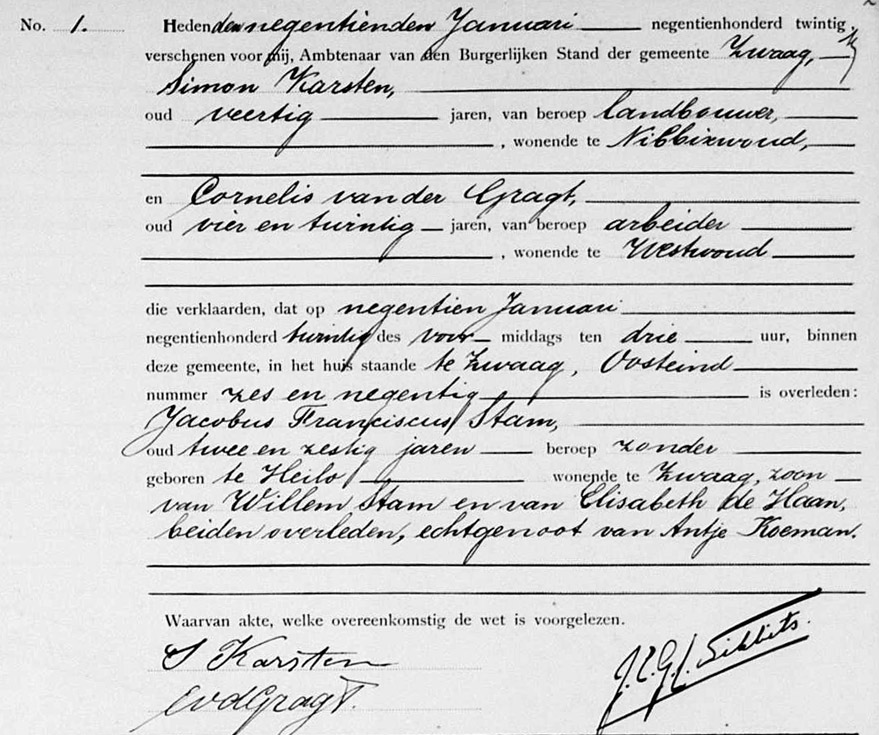 No. 1. Heden den negentienden Januari negentienhonderd twintig,
verschenen voor mij, Ambtenaar van den Burgerlijken Stand der gemeente Zwaag,
Simon Karsten,
oud veertig jaren, van beroep landbouwer,
, wonende te Nibbixwoud,
en Cornelis van der Gragt,
oud vier en twintig jaren, van beroep arbeider
, wonende te Westwoud
die verklaarden, dat op negentien Januari
negentienhonderd twintig des voor middags ten drie uur, binnen
deze gemeente, in het huis staande te Zwaag, Oosteind
nummer zes en negentig is overleden:
Jacobus Franciscus Stam,
oud twee en zestig jaren beroep zonder
geboren te Heilo wonende te Zwaag, zoon
van Willem Stam en van Elisabeth de Haan,
beiden overleden, echtgenoot van Antje Koeman.
Waarvan akte, welke overeenkomstig de wet is voorgelezen.
S Karsten
CvdGragt.